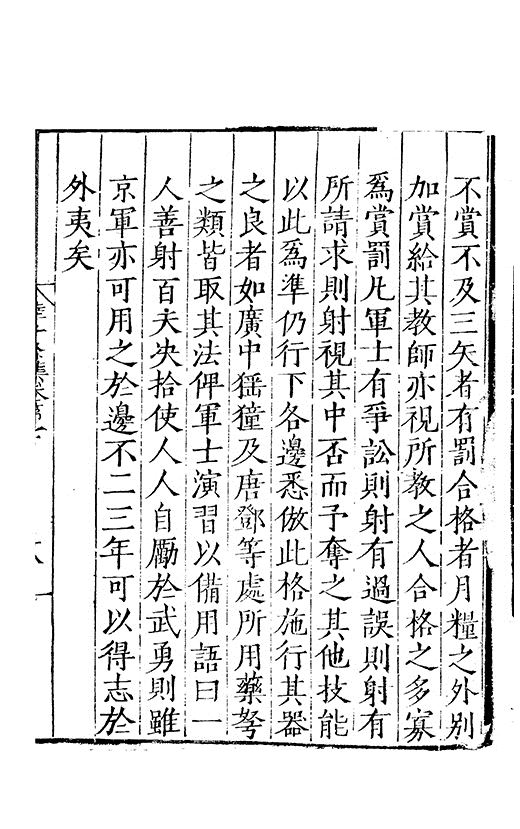 不賞不及三矢者有罰合格者月糧之外別
加賞給其教師亦視所教之人合格之多寡
爲賞罰凡軍士有爭訟則射有過誤則射有
所請求則射視其中否而予奪之其他技能
以此爲準仍行下各邊悉倣此格施行其器
之良者如廣中猺獞及唐鄧等處所用藥弩
之類皆取其法俾軍士演習以備用語曰一
人善射百夫决拾使人人自勵於武勇則雖
京軍亦可用之於邊不二三年可以得志於
外夷矣